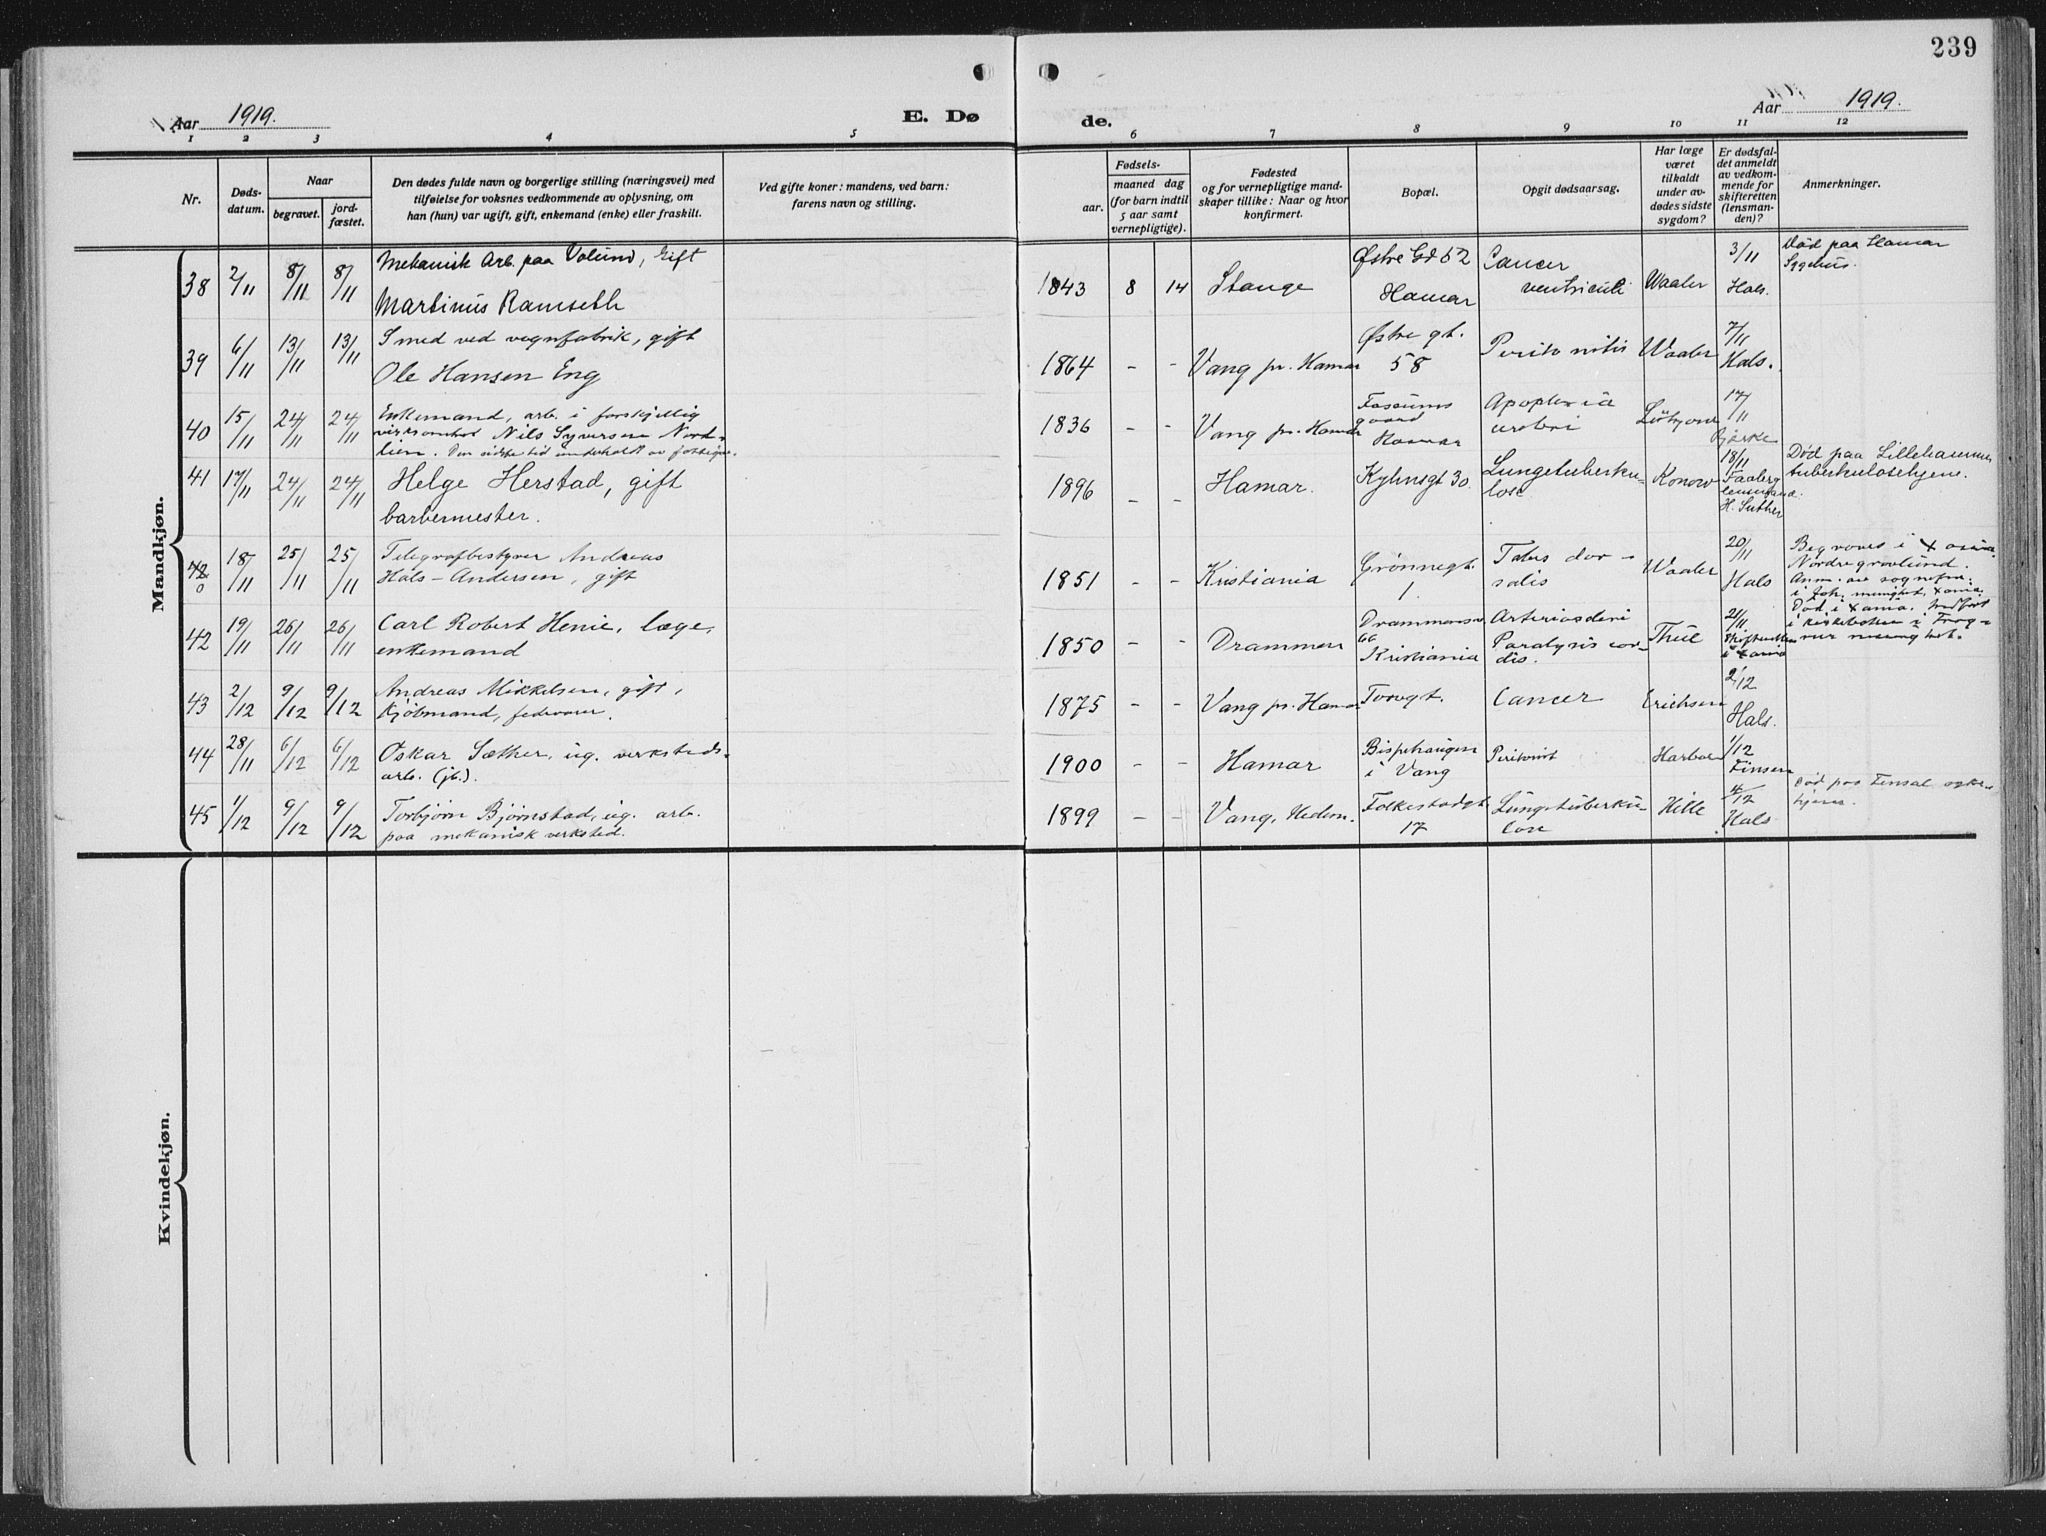 239
Aar 1919.
E. Dø
de.
Aar 1919.
1 2 3 4 5 6 7 8 9 10 11 12
Nr.
Døds-
datum.
Naar
begravet.
jord-
fæstet.
Den dødes fulde navn og borgerlige stilling (næringsvei) med
tilføielse for voksnes vedkommende av oplysning, om
han (hun) var ugift, gift, enkemand (enke) eller fraskilt.
Ved gifte koner: mandens, ved barn:
farens navn og stilling.
Fødsels-
aar.
maaned dag
(for barn indtil
5 aar samt
vernepligtige).
Fødested
og for vernepligtige mand-
skaper tillike: Naar og hvor
konfirmert.
Bopæl.
Opgit dødsaarsag.
Har læge
været
tilkaldt
under av-
dødes sidste
sygdom?
Er dødsfal-
det anmeldt
av vedkom-
mende for
skifteretten
(lensman-
den)?
Anmerkninger.
Mandkjøn.
38 2/11 8/11 8/11
Mekanisk Arb. paa Volund, Gift
Martinus Ramseth
1843 8 14 Stange
Østre Gd 52
Hamar
Cancer
ventriculi
Waaler
3/11
Hals.
Død paa Hamar
Sygehus.
39 6/11 13/11 13/11
Smed ved vognfabrik, gift
Ole Hansen Eng
1864 - - Vang pr. Hamar
Østre gt.
58
Peritonitis
Waaler
7/11
Hals.
40 15/11 24/11 24/11
Enkemand, arb. i forskjellig
virksomhet Nils Syversen Nord-
lien. Den sidste tid underholdt av fattigv.
1836 - - Vang pr. Hamar
gaard
Hamar
Apoplexia
cerebri
17/11
Bjerke
41 17/11 24/11 24/11
Helge Herstad, gift
barbermester.
1896 - - Hamar.
Kyhnsgt 30
Lungetuberku-
lose
Konow
18/11
Faaberg
lensmand.
H. Suther
Død paa Lillehammer
tuberkulosehjem.
42 0 18/11 25/11 25/11
Telegrafbestyrer Andreas
Hals-Andersen, gift
1851 - - Kristiania
Grønnegt.
1.
Tabes dor-
salis
Waaler
20/11
Hals
Begraves i Xania.
Nordre gravlund.
Anm. av sognepr.
i Joh. menighet, Xania.
42 19/11 26/11 26/11
Carl Robert Henie, læge,
enkemand
1850 - - Drammen
Drammensv.
66
Kristiania
Paralysis cor-
dis.
Thue
21/11
Skifteretten
i Xania
Død i Xania. Indført
i kirkeboken i Frog-
ner menighet.
43 2/12 9/12 9/12
Andreas Mikkelsen, gift,
Kjøbmand, fedevarer.
1875 - - Vang pr. Hamar
Torvgt.
Cancer
Erichsen
2/12
Hals.
44 28/11 6/12 6/12
Oskar Sæther, ug. verksteds-
arb. (jb.).
1900 - - Hamar
Bispehaugen
i Vang
Peritonit
Harboe
1/12
Finsen
45 1/12 9/12 9/12
Torbjørn Bjørnstad, ug. arb.
paa mekanisk verksted.
1899 - - Vang, Hedem.
Folkestadgt.
17
Lungetuberku-
lose
Hille
4/12
Hals
Død paa
hjem.
Kvindekjøn.